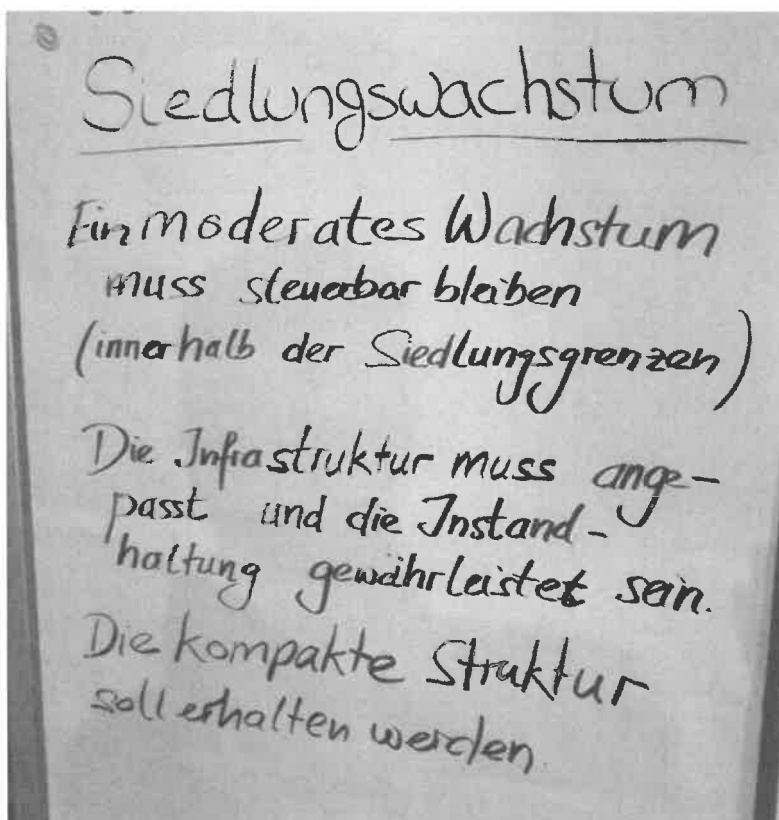 Siedlungswachstum
Ein moderates Wachstum
muss steuerbar bleiben
(innerhalb der Siedlungsgrenzen)
Die Infrastruktur muss ange-
passt und die Instand-
haltung gewährleistet sein.
Die kompakte Struktur
soll erhalten werden.